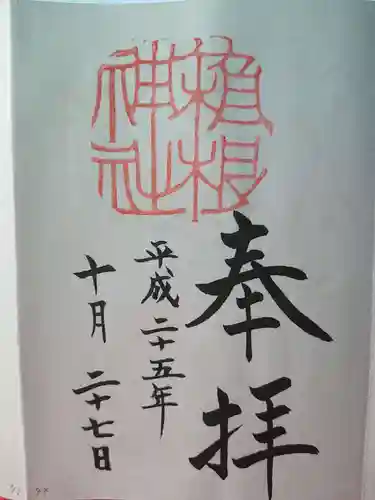 奉拝
平成二十五年
十月二十七日
神社